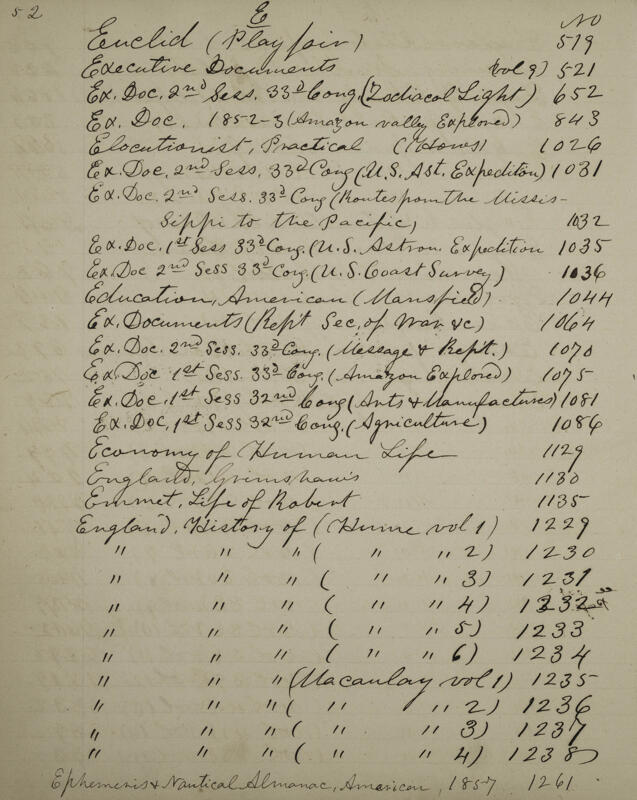 52
E
No
Euclid (Playfair) 519
Executive Documents Vol 9) 521
Ex. Doc. 2nd Sess. 33d Cong. (Zodiacol Light) 652
Ex. Doc. 1852-3 (Amazon valley Explored) 843
Elocutionist, Practical (Hows) 1026
Ex. Doc. 2nd Sess. 33d Cong (U.S. Ast. Expediton) 1031
Ex. Doc. 2nd Sess. 33d Cong (Routes from the Missis-
sippi to the Pacific) 1032
Ex. Doc. 1st Sess 33d Cong. (U.S. Astron. Expedition 1035
Ex. Doc 2nd Sess 33d Cong. (U.S. Coast Survey) 1036
Education, American (Mansfield) 1044
Ex. Documents (Rept Sec, of War &c) 1064
Ex. Doc. 2nd Sess. 33d Cong. (Message & Rept.) 1070
Ex. Doc 1st Sess. 33d Cong. (Amazon Explored) 1075
Ex. Doc, 1st Sess 32nd Cong (Arts & Manufactures) 1081
Ex. Doc, 1st Sess 32nd Cong. (Agriculture) 1086
Economy of Human Life 1129
England, Grimshaw's 1130
Emmet, Life of Robert 1135
England, History of (Hume vol 1) 1229
" " " ( " " 2) 1230
" " " ( " " 3) 1231
" " " ( " " 4) 1232
" " " ( " " 5) 1233
" " " ( " " 6) 1234
" " " (Macaulay vol 1) 1235
" " " ( " " 2) 1236
" " " ( " " 3) 1237
" " " ( " " 4) 1238
Ephemeris & Nautical Almanac, American, 1857 1261